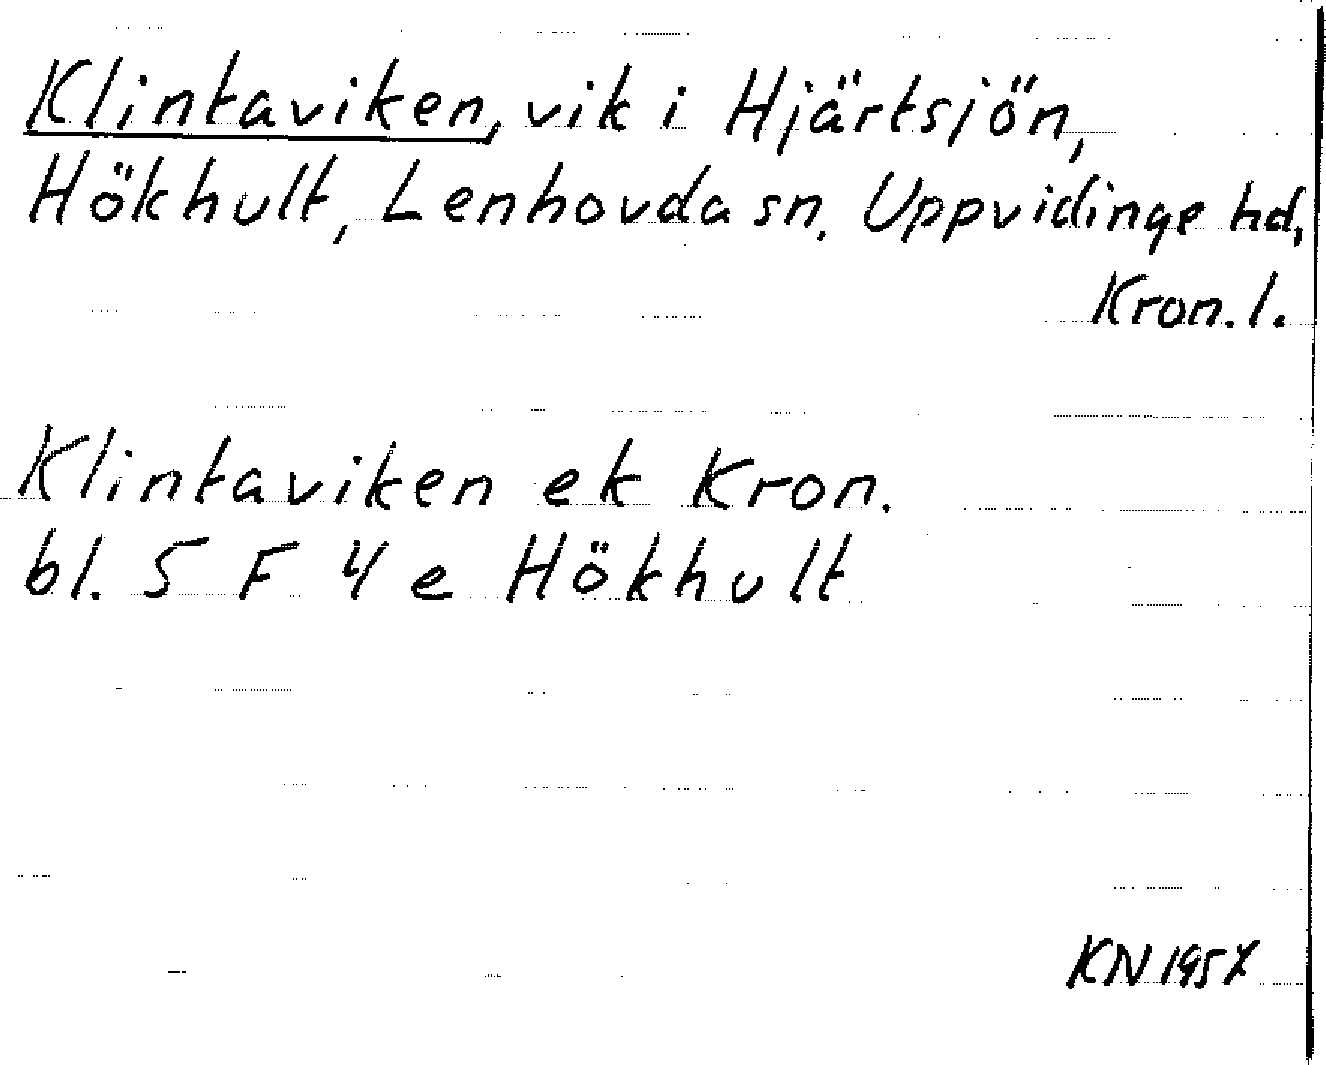 Klintaviken, vik i Hjärtsjön,
Hökhult, Lenhovda sn. Uppvidinge hd,
Kron. l.
Klintaviken ek Kron.
bl. 5 F 4 e Hökhult
KN 1957